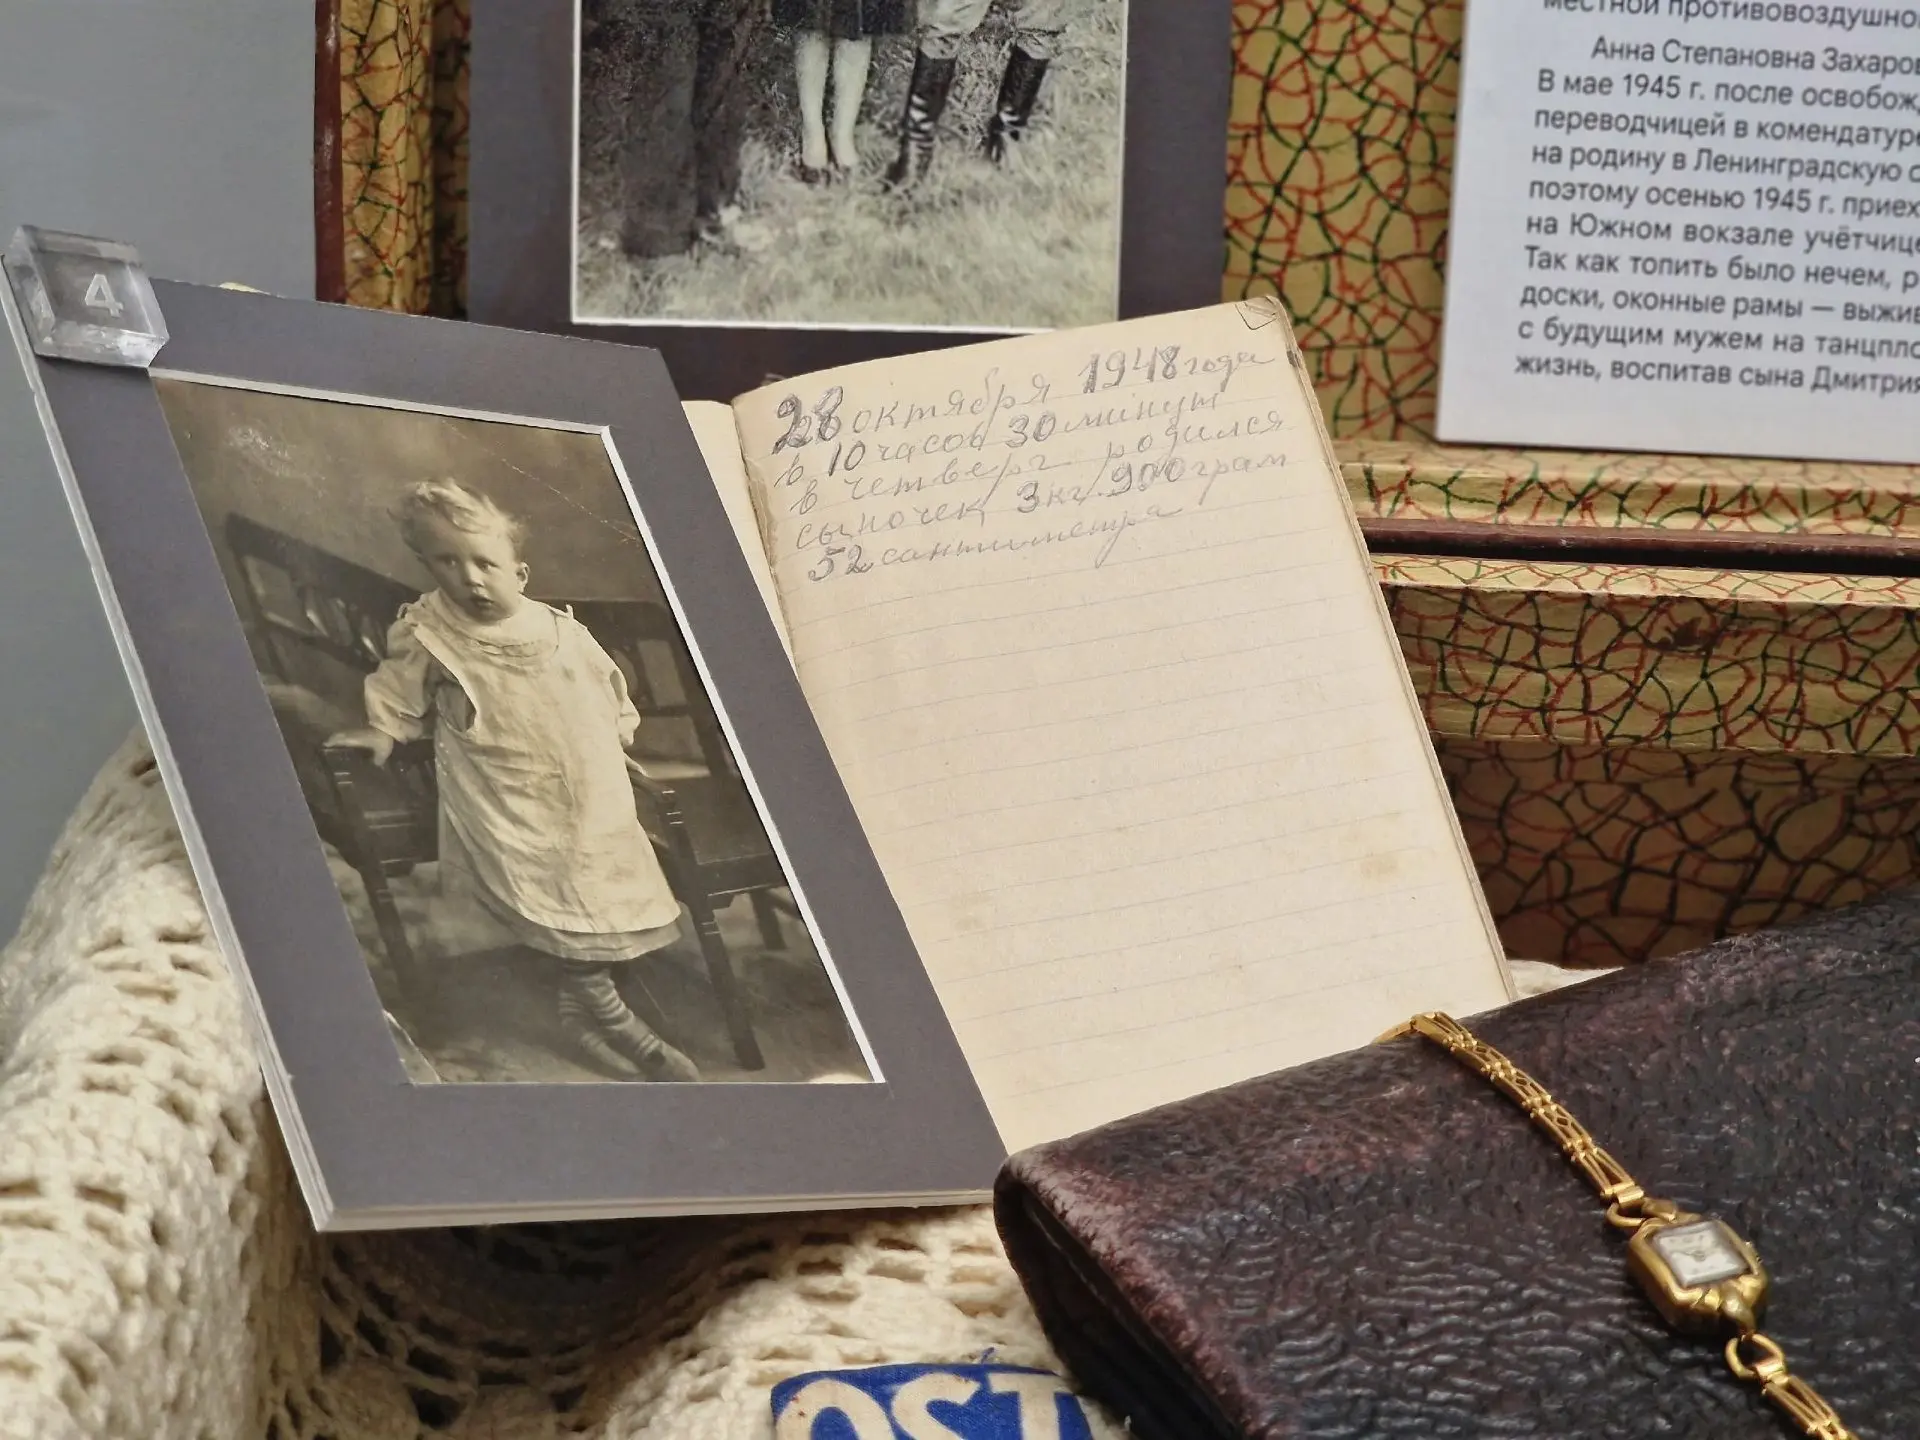 местной противовоздушно
Анна Степановна Захаров
В мае 1945 г. после освобож
переводчицей в комендатуре
на родину в Ленинградскую о
поэтому осенью 1945 г. приех
на Южном вокзале учётчице
Так как топить было нечем, р
доски, оконные рамы — выжив
с будущим мужем на танцпло
жизнь, воспитав сына Дмитрия
4
28 октября 1948 года
в 10 часов 30 минут
в четверг родился
сыночек 3 кг. 900 грам
52 сантиметра
OST